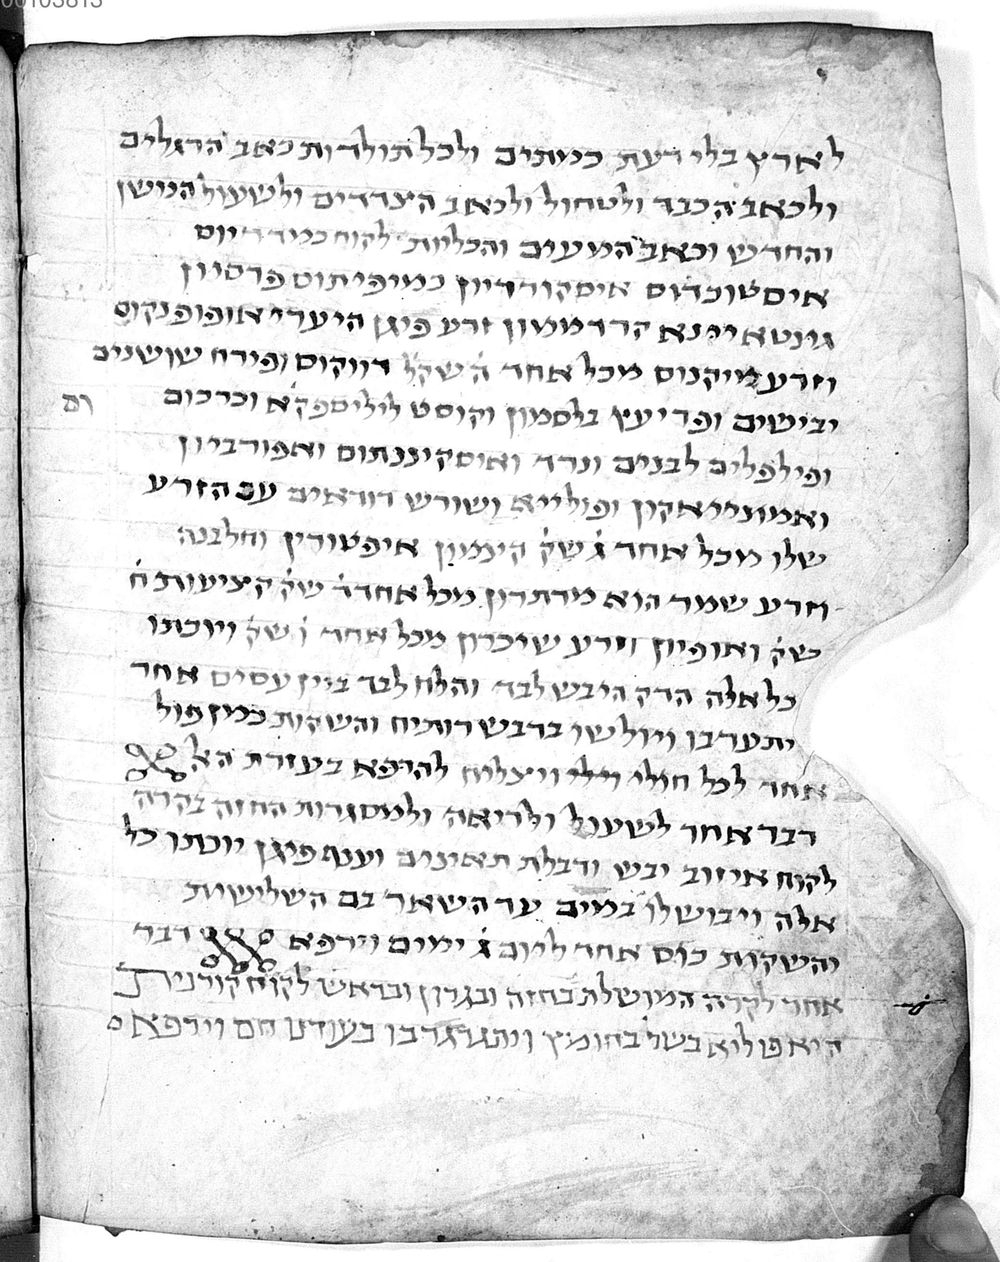 00103813
לארץ בלי דעת כמתים ולכל תולדות כאב הרגלים
ולכאב הכבד ולטחול ולכאב הצדדים ולשעול הנושן
והחדש וכאב המעים והכליות לקוח כמידריוס
איסטוכדוס איסקורדיון כמיפיתוס פרסיון
גינטאיינא קרדממון זרע פיגן היערי אופופנקוס
וזרע מיקנוס מכל אחד ה שקל דווקוס ופירח שושנים
יבישים ופרי עץ בלסמון וקוסט ליליספקא וכרכום
רם
ופילפלים לבנים ונרד ואיסקיננתוס ואפורביון
ואמוניייאקון ופולייא ושורש דודאים עם הזרע
שלו מכל אחד ג שק קינמון איפטורין וחלבנה
וזרע שמר הוא מרתרון מכל אחד ד שק קציעות ח
שק ואופיון וזרע שיכרון מכל אחד ו שק ויוכתו
כל אלה הדק היבש לבד והלח לבד בנין עסיס אחד
יתערבו ויולשו בדבש רותיח והשקות כמין פול
אחד לכל חולי וחלי ויצליח להרפא בעזרת האל
דבר אחר לשעול ולריאה ולמסגרות החזה בקרה
לקוח איזוב יבש ודבלת תאינים וענף פיגן יוכתו כל
אלה ויבושלו במים עד השאר בם השלישית
והשקות כוס אחד ליום ג ימים וירפא דבר
אחר לקרה המושלת בחזה ובגרון ובראש לקוח קורנית
היא פוליא בשל בחומץ ויתגרגר בו בעודנו חם וירפא